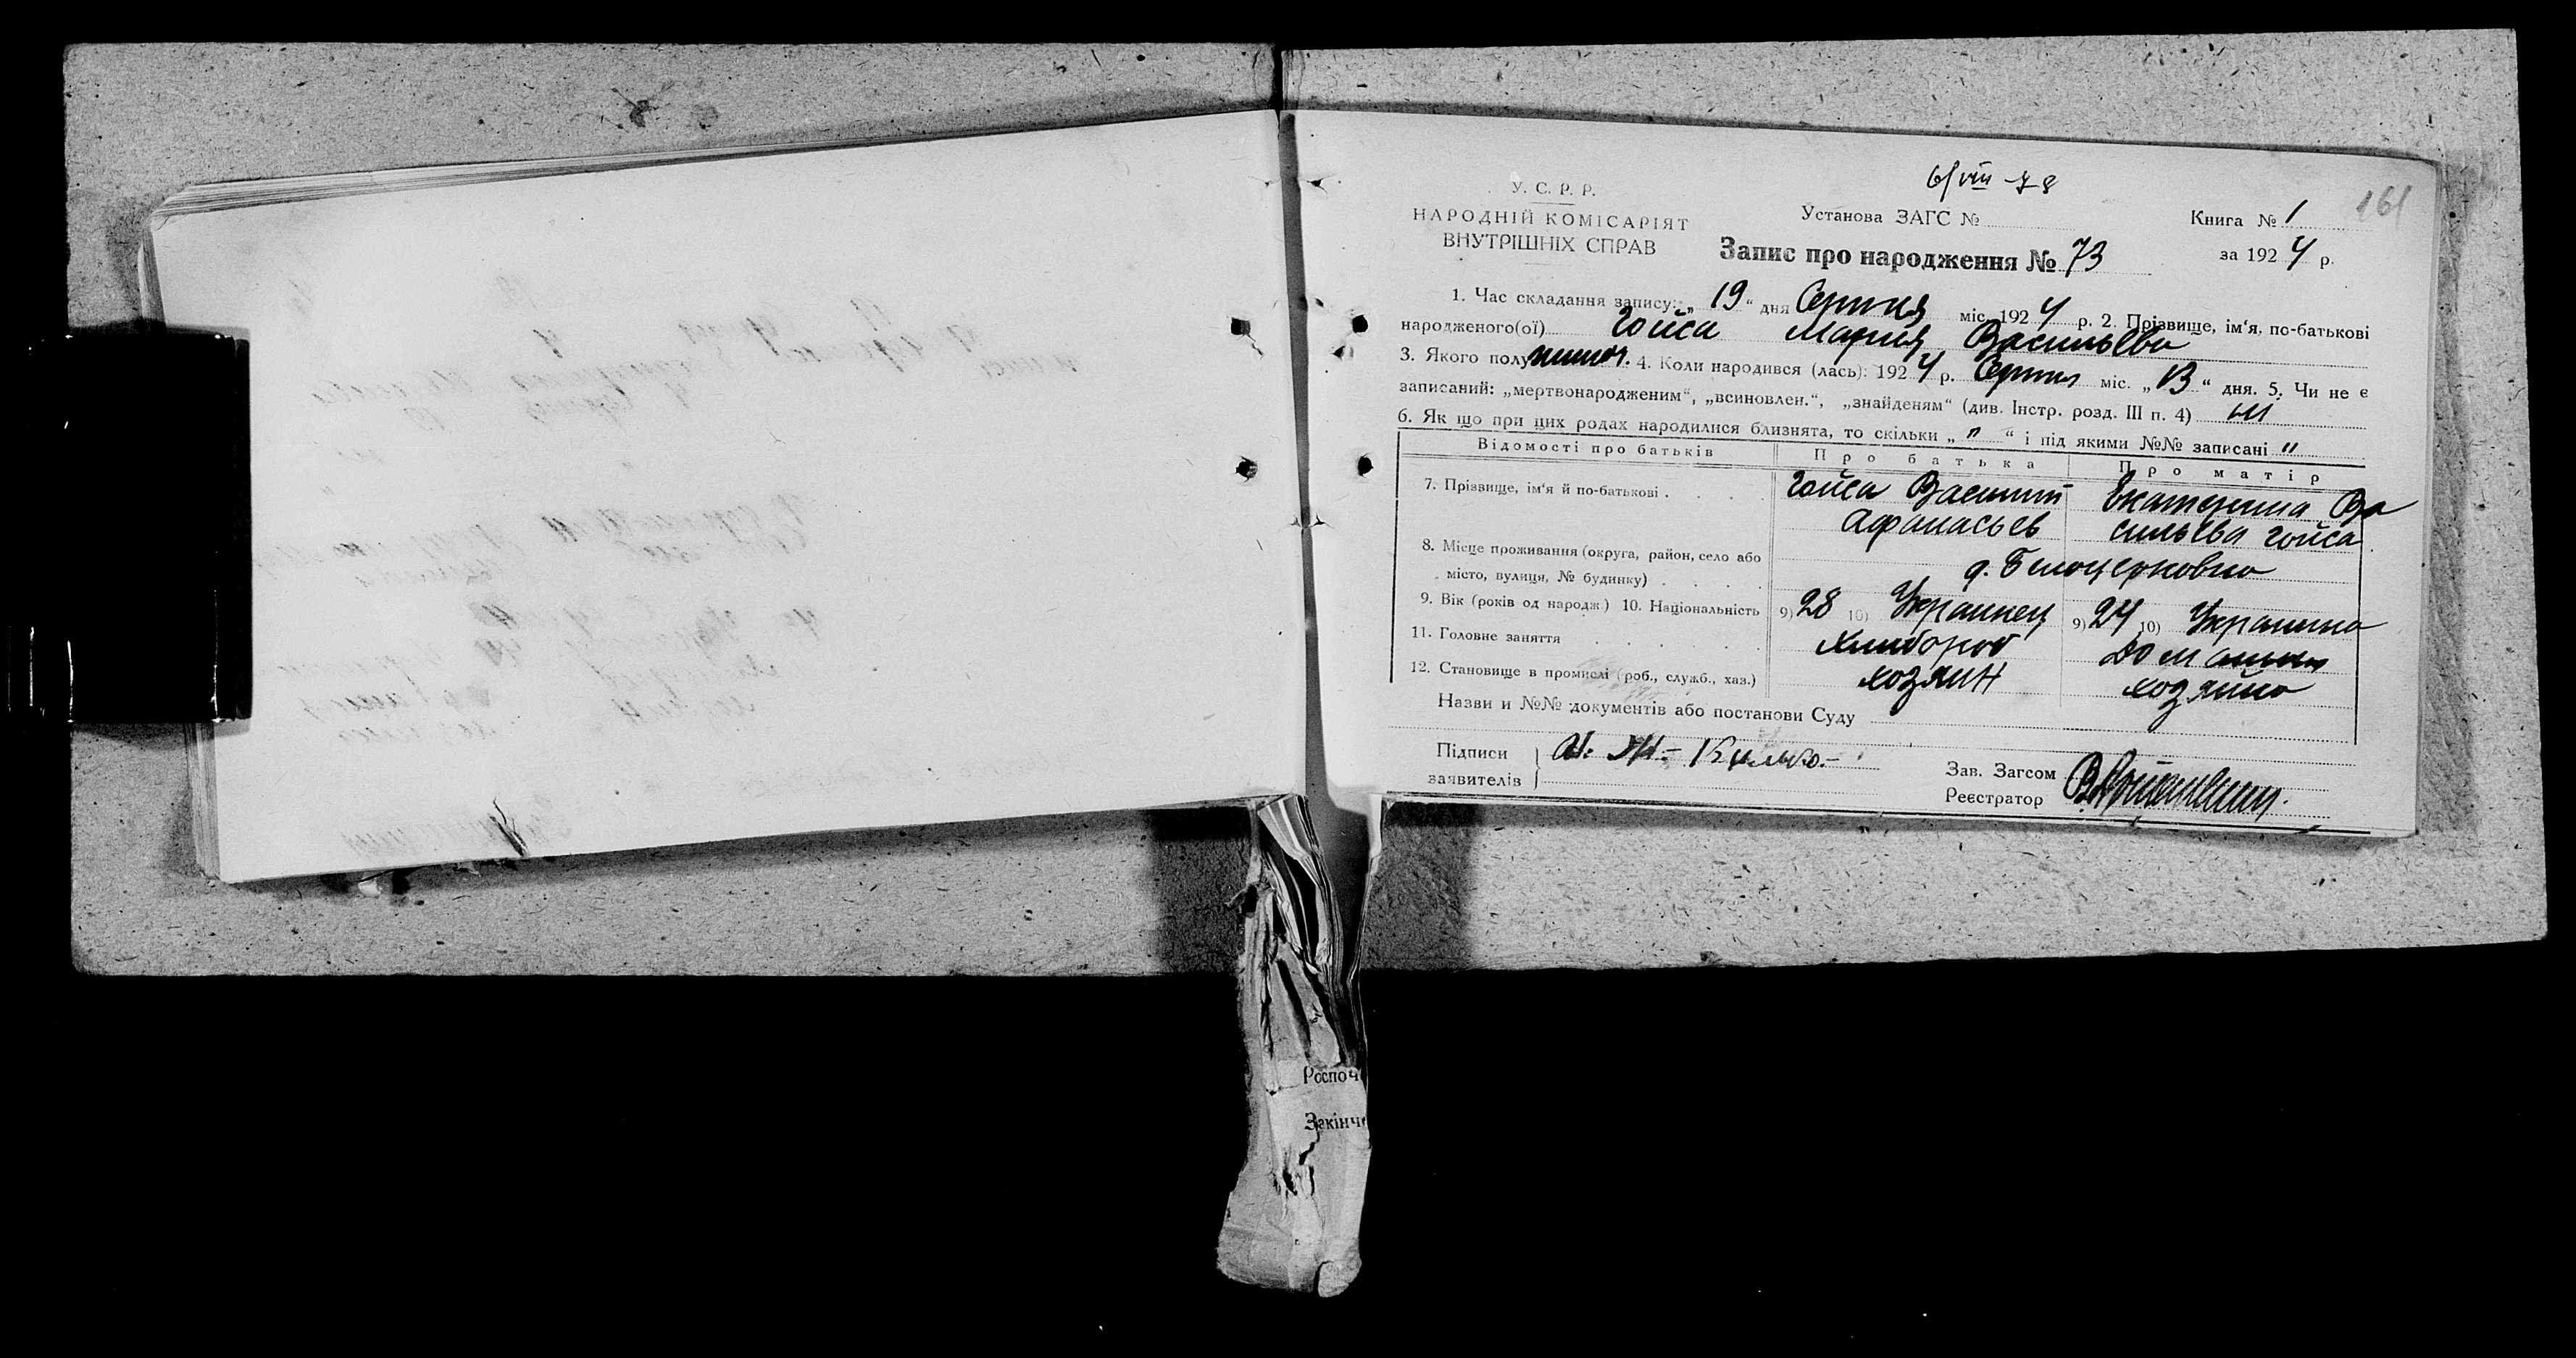 6/VIII-78
161
У. С. Р. Р.
НАРОДНІЙ КОМІСАРІЯТ
ВНУТРІШНІХ СПРАВ
Установа ЗАГС №
Книга № 1
Запис про народження № 73
за 1924 р.
1. Час складання запису: „19“ дня Серпня міс. 1924 р. 2. Прізвище, ім‘я, по-батькові
народженого(ої) Гойса Мария Васильева
3. Якого полу 4. Коли народився (лась): 1924 р. Серпня міс. „13“ дня. 5. Чи не є
записаний: „мертвонародженим“, „всиновлен.“, „знайденям“ (див. Інстр. розд. III п. 4)
6. Як що при цих родах народилися близнята, то скільки „ " “ і під якими №№ записані "
Відомості про батьків Про батька Про матір
7. Прізвище, ім‘я й по-батькові . . . . Гойса Василий Екатерина Ва
Афанасьев сильева Гойса
8. Місце проживання (округа, район, село або
місто, вулиця, № будинку) . . . . д. Белоцерковка
9. Вік (років од народж.) 10. Національність 9) 28 10) Украинец 9) 24 10) Украинка
11. Головне заняття . . . . Хлибороб Домашня
12. Становище в промислі (роб., служб., хаз.) хозяин хозяйка
Назви и №№ документів або постанови Суду
Підписи
заявителів
Зав. Загсом
Реєстратор
Роспоч
Закінче